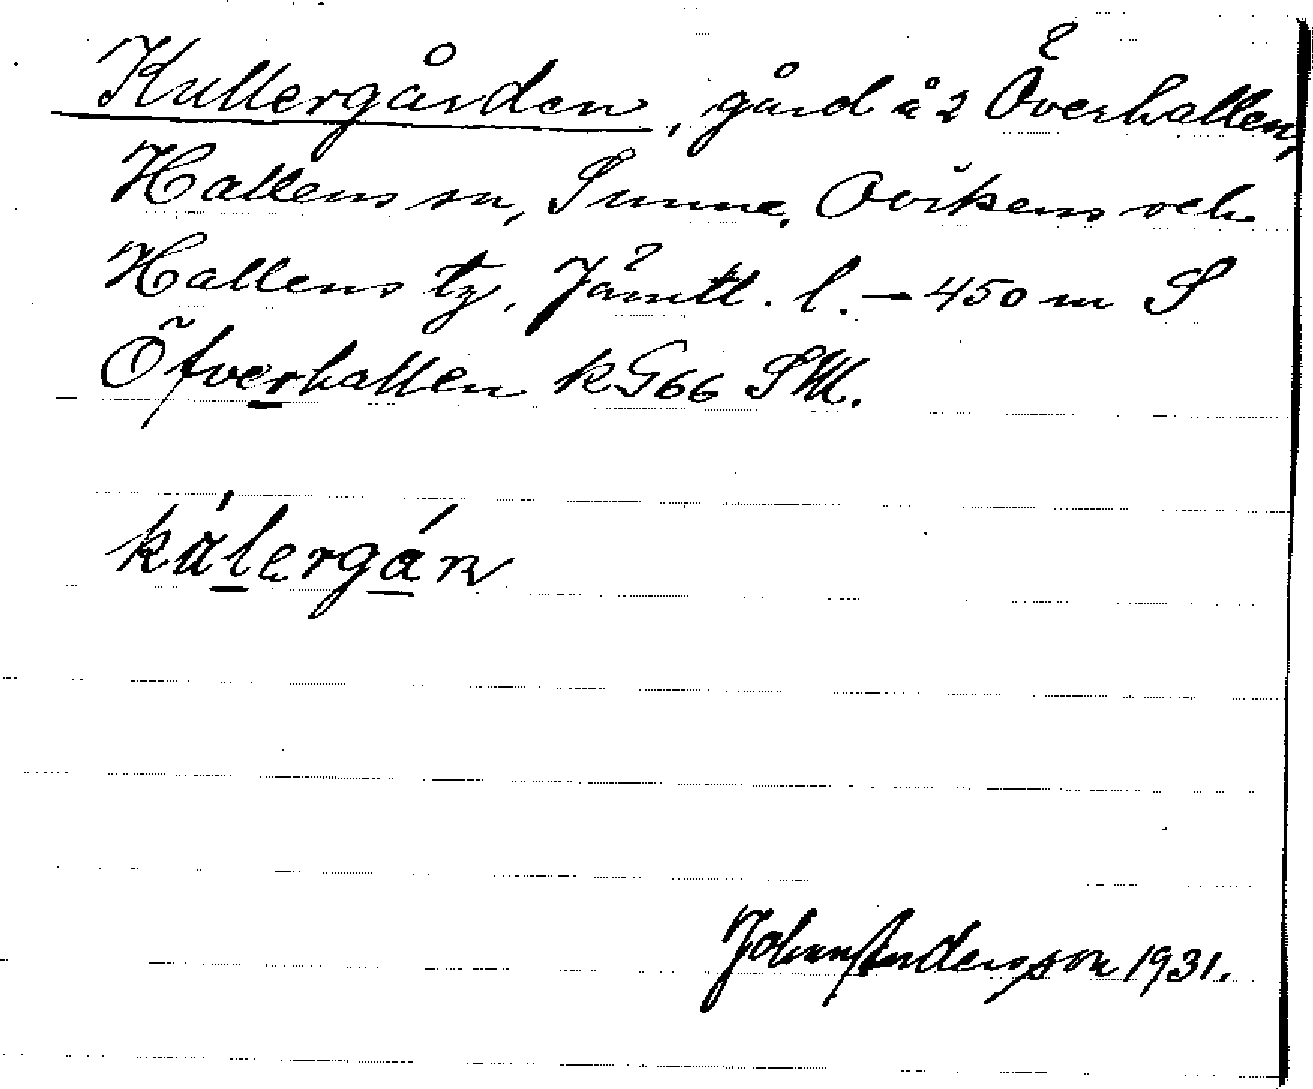 Kullergården, gård å 2 Överhallen,
Hallens sn, Sunne, Ovikens och
Hallens tg, Jämtl. l. – 450 m S
Öfverhallen k G66 SV.
kålergán
John Andersson 1931.